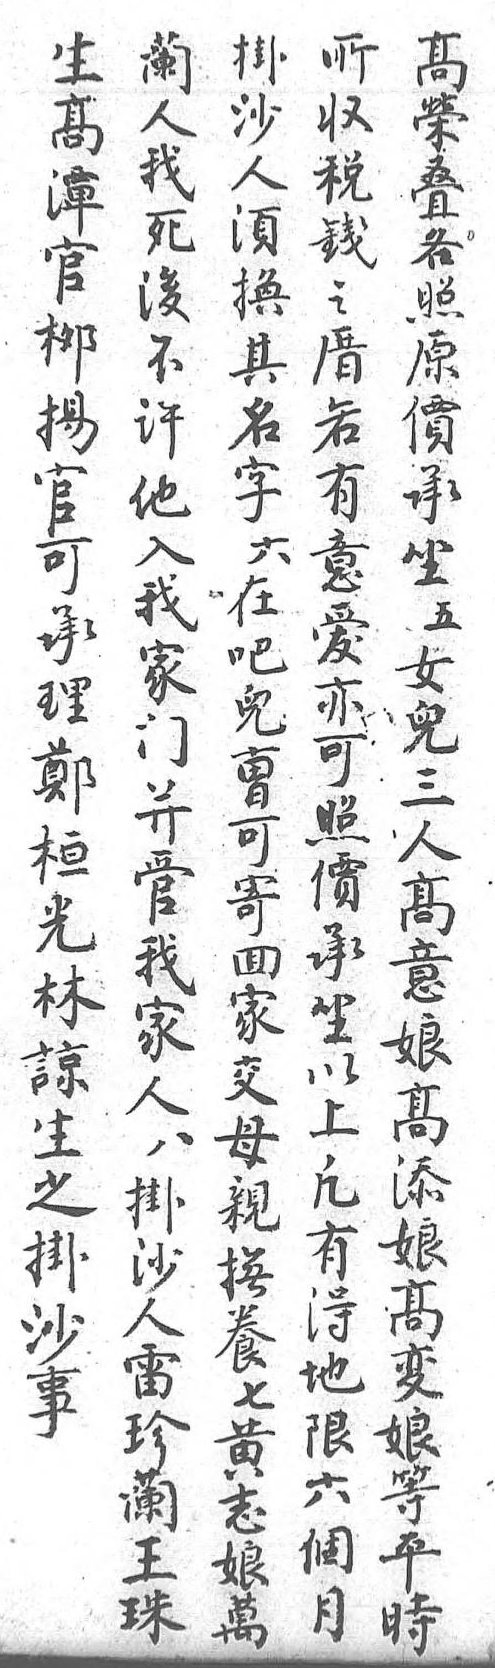 高榮疊各照原價承坐五女兒三人高意娘高添娘高変娘等平時
所收稅錢之厝若有意爱亦可照價承坐以上凢有淂地限六個月
掛沙人須換其名字六在吧兒曺可寄囬家交母親撫養七黄志娘萬
蘭人我死後不許他入我家门并管我家人八掛沙人雷珍蘭王珠
生高潭官梛揚官可承理鄭桓光林諒生之掛沙事